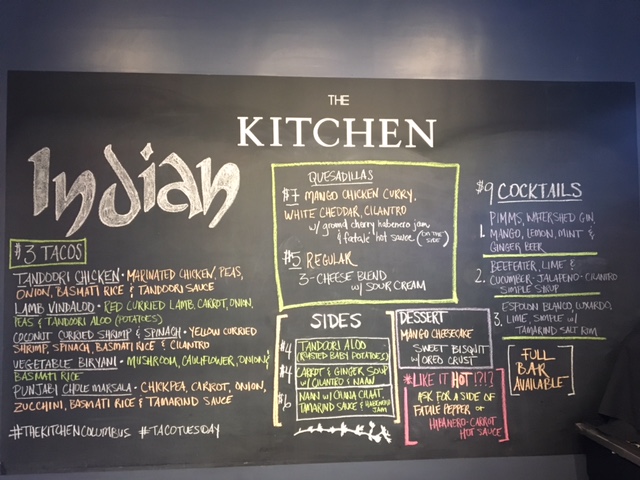 THE
KITCHEN
Indian
$3 TACOS
TANDOORI CHICKEN • MARINATED CHICKEN, PEAS,
ONION, BASMATI RICE & TANDOORI SAUCE
LAMB VINDALOO • RED CURRIED LAMB, CARROT, ONION,
PEAS & TANDOORI ALOO (POTATOES)
COCONUT CURRIED SHRIMP & SPINACH • YELLOW CURRIED
SHRIMP, SPINACH, BASMATI RICE & CILANTRO
VEGETABLE BIRYANI • MUSHROOM, CAULIFLOWER, ONION &
BASMATI RICE
PUNJABI CHOLE MARSALA • CHICKPEA, CARROT, ONION,
ZUCCHINI, BASMATI RICE & TAMARIND SAUCE
#THEKITCHENCOLUMBUS #TACOTUESDAY
QUESADILLAS
$7 MANGO CHICKEN CURRY,
WHITE CHEDDAR, CILANTRO
w/ ground cherry habenero jam
& fatale hot sauce (ON THE SIDE)
$5 REGULAR
3-CHEESE BLEND
w/ SOUR CREAM
SIDES
$4 TANDOORI ALOO
(ROASTED BABY POTATOES)
$4 CARROT & GINGER SOUP
w/ CILANTRO & NAAN
$6 NAAN w/ CHUNA CHAAT,
TAMARIND SAUCE & HABENERO
JAM
DESSERT
MANGO CHEESECAKE
SWEET BISQUIT
w/ OREO CRUST
*LIKE IT HOT !?!?
ASK FOR A SIDE OF
FATALE PEPPER or
HABANERO-CARROT
HOT SAUCE
$9 COCKTAILS
1. PIMMS, WATERSHED GIN,
MANGO, LEMON, MINT &
GINGER BEER
2. BEEFEATER, LIME &
CUCUMBER-JALAPEÑO-CILANTRO
SIMPLE SYRUP
3. ESPOLON BLANCO, LUXARDO,
LIME, SIMPLE w/
TAMARIND SALT RIM
FULL
BAR
AVAILABLE